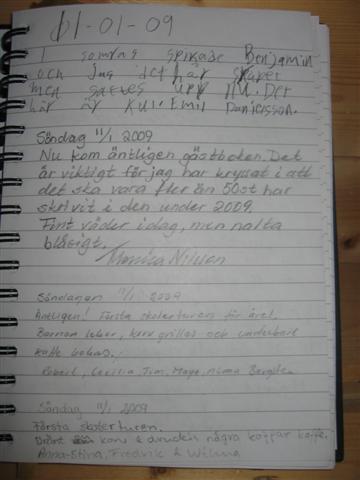 01-01-09
I somras spikade Benjamin
och jag det här skåpet
men sattes upp nu. Det
här är kul. Emil Danielsson.
Söndag 11/1 2009
Nu kom äntligen gästboken. Det
är viktigt för jag har kryssat i att
det ska vara fler än 50st har
skrivit i den under 2009.
Fint väder idag, men nalta
blåsigt.
Monica Nilsson
Söndagen 11/1 2009
Äntligen! Första skoterturen för året.
Barnen leker, korv grillas och underbart
kaffe kokas.
Robert, Cecilia Tim, Maya, Alma Bergsten
Söndag 11/1 2009
Första skoterturen.
korv & druckit några koppar kaffe.
Anna-Stina, Fredrik & Wilma